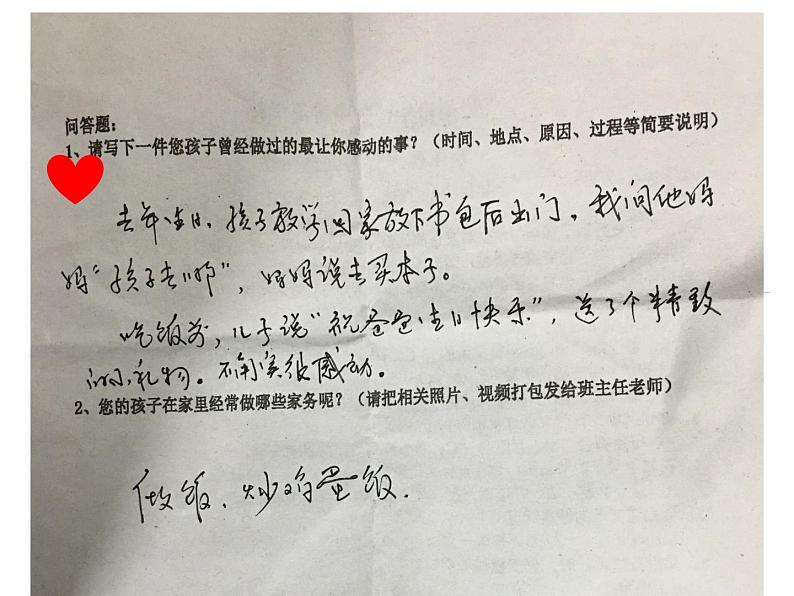 问答题：
1、请写下一件您孩子曾经做过的最让你感动的事？（时间、地点、原因、过程等简要说明）
去年生日，孩子放学回家放下书包后出门，我问他妈
妈“孩子去哪”，妈妈说去买本子。
吃饭前，儿子说“祝爸爸生日快乐”，送了个精致
的小礼物。确实很感动。
2、您的孩子在家里经常做哪些家务呢？（请把相关照片、视频打包发给班主任老师）
做饭，炒鸡蛋饭.